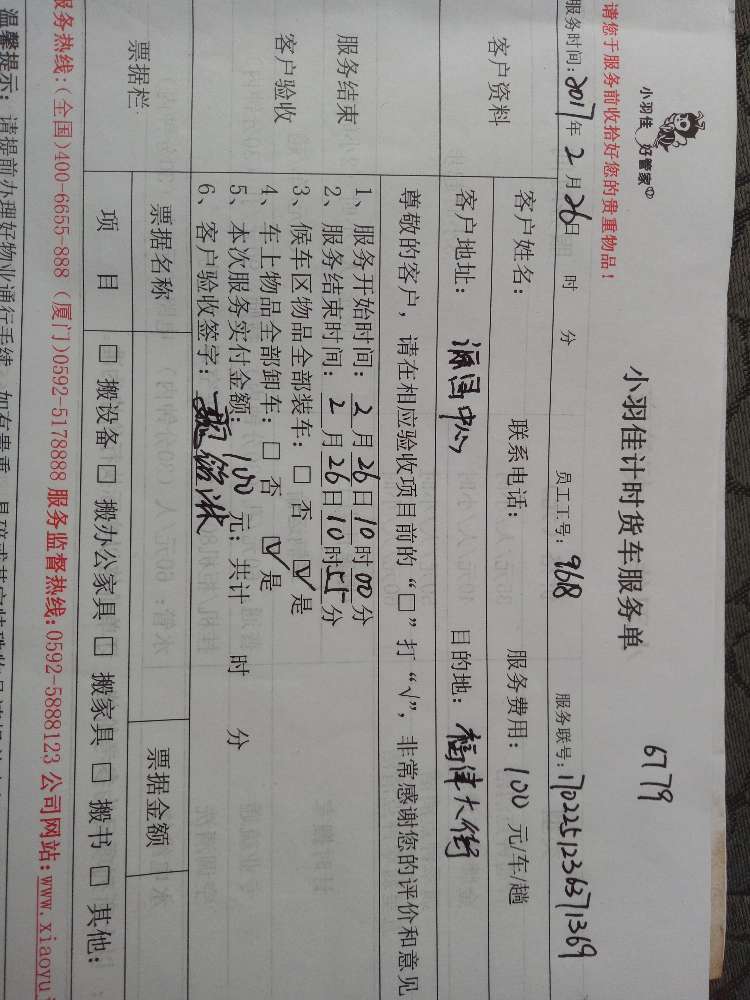 小羽佳 好管家
6779
小羽佳计时货车服务单
请您于服务前收拾好您的贵重物品！
服务时间：2017年2月26日 时 分 员工工号：968 服务联号：1702251236371369
客户资料
客户姓名： 联系电话： 服务费用：100元/车/趟
客户地址： 中心 目的地：福津大街
服务结束
客户验收
尊敬的客户，请在相应验收项目前的“□”打“√”，非常感谢您的评价和意见
1、服务开始时间：2月26日10时00分
2、服务结束时间：2月26日10时55分
3、候车区物品全部装车：□否 ☑是
4、车上物品全部卸车：□否 ☑是
5、本次服务实付金额：100元；共计 时 分
6、客户验收签字：
票据栏
票据名称 票据金额
项 目 □搬设备□搬办公家具□搬家具□搬书□其他：
服务热线：(全国)400-6655-888 (厦门)0592-5178888 服务监督热线：0592-5888123 公司网站：www.xiaoyu
温馨提示：请提前办理好物业通行手续，如有贵重